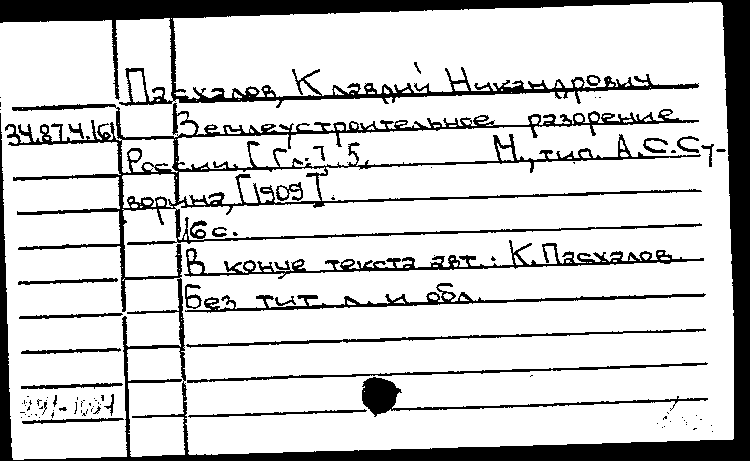 Пасхалов, Клавдий Никандрович
34.87.4.161 Землеустроительное разорение
России. [Гл.] 5. М., тип. А.С.Су-
ворина, [1909].
16 с.
В конце текста авт.: К.Пасхалов.
Без тит. л. и обл.